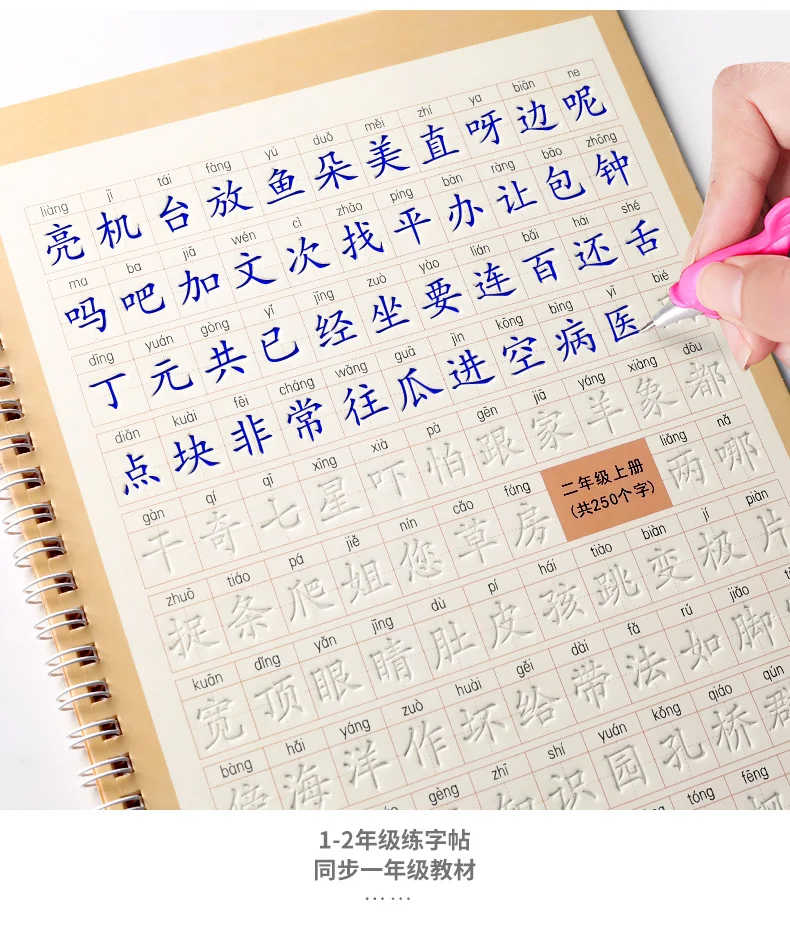 liàng jī tái fàng yú duǒ měi zhí ya biān ne
亮机台放鱼朵美直呀边呢
ma ba jiā wén cì zhǎo píng bàn ràng bāo zhōng
吗吧加文次找平办让包钟
dīng yuán gòng yǐ jīng zuò yào lián bǎi hái shé
丁元共已经坐要连百还舌
diǎn kuài fēi cháng wǎng guā jìn kōng bìng yī bié
点块非常往瓜进空病医
gàn qí qī xīng xià pà gēn jiā yáng xiàng dōu
干奇七星吓怕跟家羊象都
zhuō tiáo pá jiě nín cǎo fáng
捉条爬姐您草房
二年级上册
(共250个字)
liǎng nǎ
两哪
kuān dǐng yǎn jīng dù pí hái tiào biàn jí piàn
宽顶眼睛肚皮孩跳变极片
bàng hǎi yáng zuò huài gěi dài fǎ rú jiǎo
傍海洋作坏给带法如脚
gèng zhī shí yuán kǒng qiáo qún
知识园孔桥群
tóng fēng
1-2年级练字帖
同步一年级教材
……